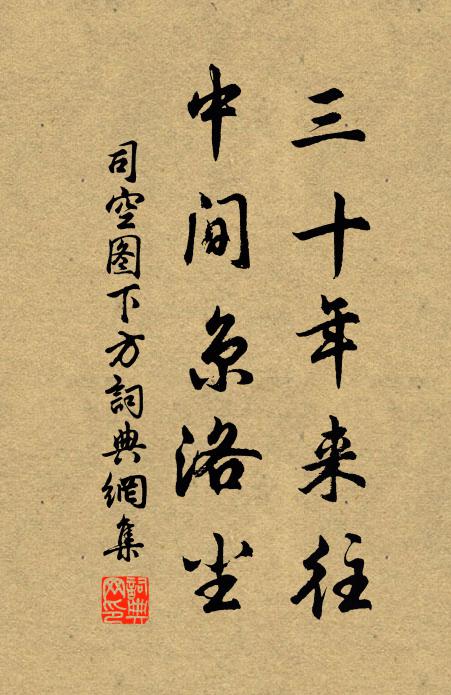 三十年来往
中间京洛尘
司空图下方詞典網集
詞典网印